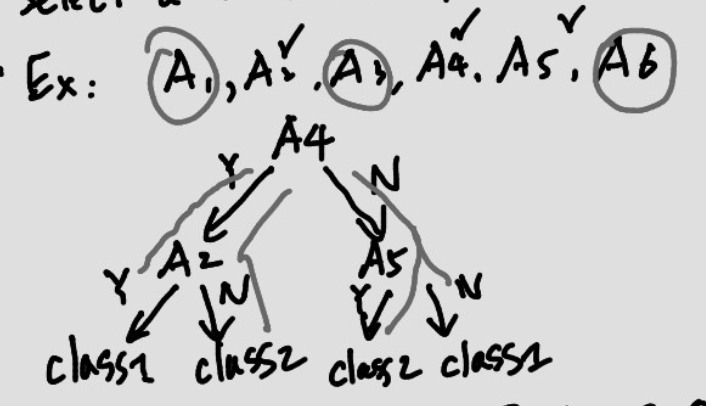 select a
Ex: A1, A2, A3, A4, A5, A6
A4
Y N
A2 A5
Y N Y N
class1 class2 class2 class1